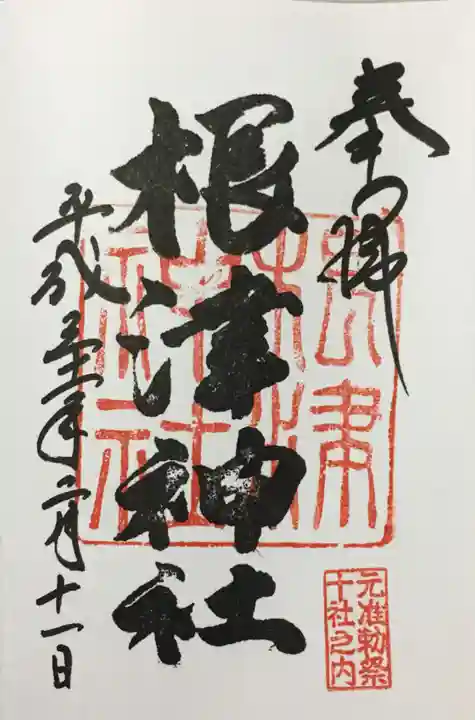 奉拝
根津
神社
根津神社
元准勅祭
十社之内
平成三十一年二月十一日